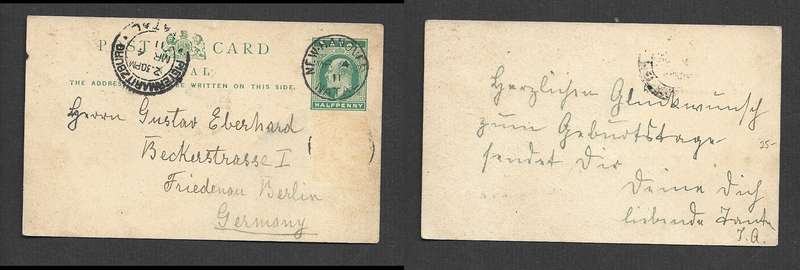 POST CARD
NATAL
THE ADDRESS BE WRITTEN ON THIS SIDE.
PIETERMARITZBURG NATAL
2.30PM
MR
11
NEW-HANOVER
11
NAT
HALFPENNY
Herrn Gustav Eberhard
Beckerstrasse I
Friedenau Berlin
Germany
Herzlichen Glückwunsch
zum Geburtstage
sendet Dir
Deine Dich
liebende Tante
J.A.
25-